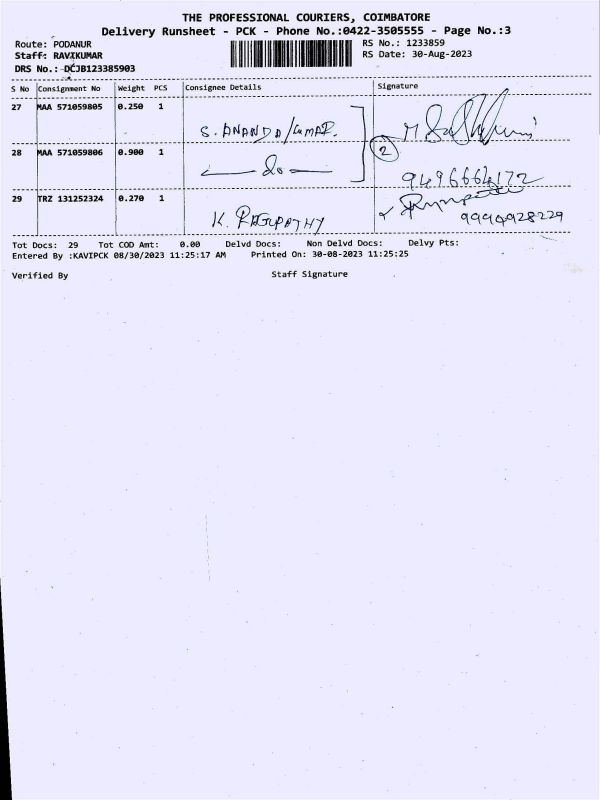 THE PROFESSIONAL COURIERS, COIMBATORE
Delivery Runsheet - PCK - Phone No.:0422-3505555 - Page No.:3
Route: PODANUR
RS No.: 1233859
Staff: RAVIKUMAR
RS Date: 30-Aug-2023
DRS No.: DCJB123385903
S No Consignment No Weight PCS Consignee Details Signature
27 MAA 571059805 0.250 1
S. ANANDA KUMAR.
28 MAA 571059806 0.900 1
2
do
9496664172
29 TRZ 131252324 0.270 1
K. RAGUPATHY
Tot Docs: 29 Tot COD Amt: 0.00 Delvd Docs: Non Delvd Docs: Delvy Pts:
Entered By :KAVIPCK 08/30/2023 11:25:17 AM Printed On: 30-08-2023 11:25:25
Verified By Staff Signature